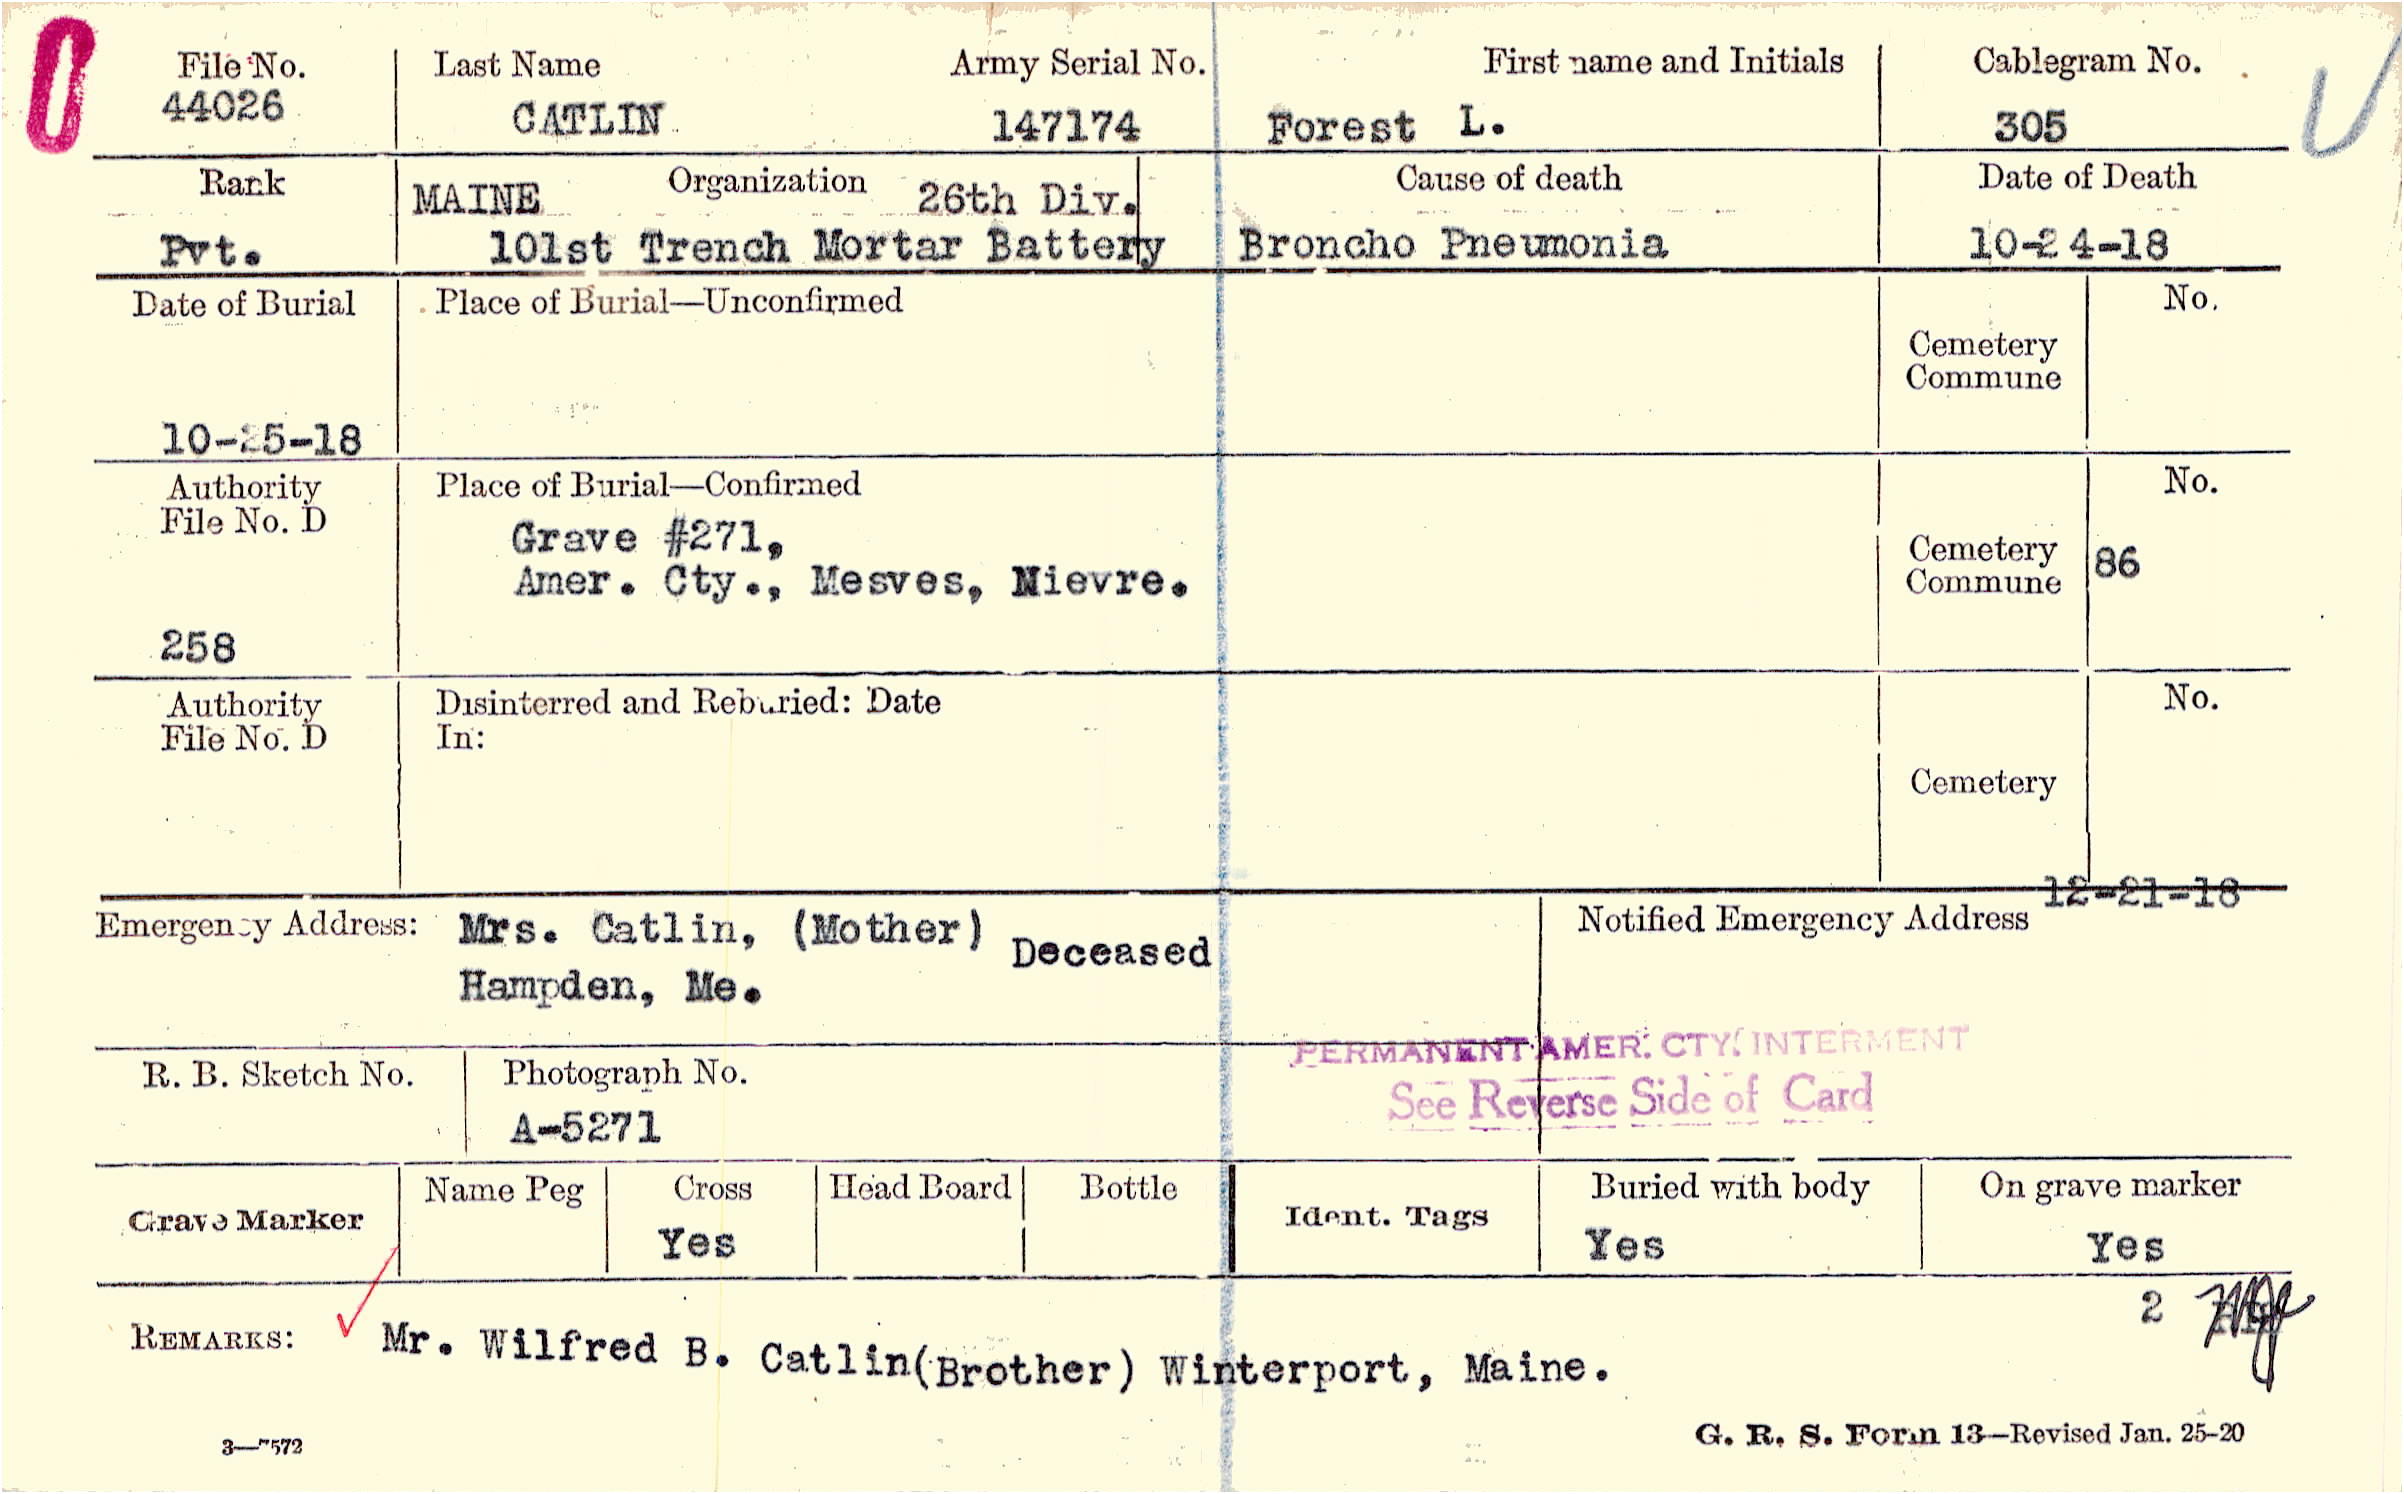 File No. Last Name Army Serial No. First name and Initials Cablegram No.
44026 CATLIN 147174 Forest L. 305
Rank MAINE Organization 26th Div. Cause of death Date of Death
Pvt. 101st Trench Mortar Battery Broncho Pneumonia 10-24-18
Date of Burial Place of Burial—Unconfirmed No.
Cemetery
Commune
10-25-18
Authority Place of Burial—Confirmed No.
File No. D
Grave #271,
Cemetery
Amer. Cty., Mesves, Nievre. Commune 86
258
Authority Disinterred and Reburied: Date No.
File No. D In:
Cemetery
12-21-18
Emergency Address: Mrs. Catlin, (Mother) Deceased Notified Emergency Address
Hampden, Me.
PERMANENT AMER. CTY. INTERMENT
R. B. Sketch No. Photograph No. See Reverse Side of Card
A-5271
Grave Marker Name Peg Cross Head Board Bottle Ident. Tags Buried with body On grave marker
Yes Yes Yes
2
REMARKS: Mr. Wilfred B. Catlin(Brother) Winterport, Maine.
3—7572 G. R. S. Form 13—Revised Jan. 25-20